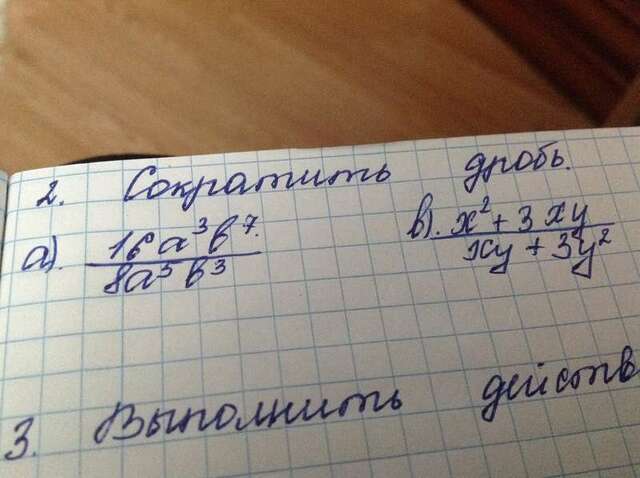 2. Сократить дробь.
а). 16a³b⁷. / 8a³b³ в). x² + 3xy / xy + 3y²
3. Выполнить действ